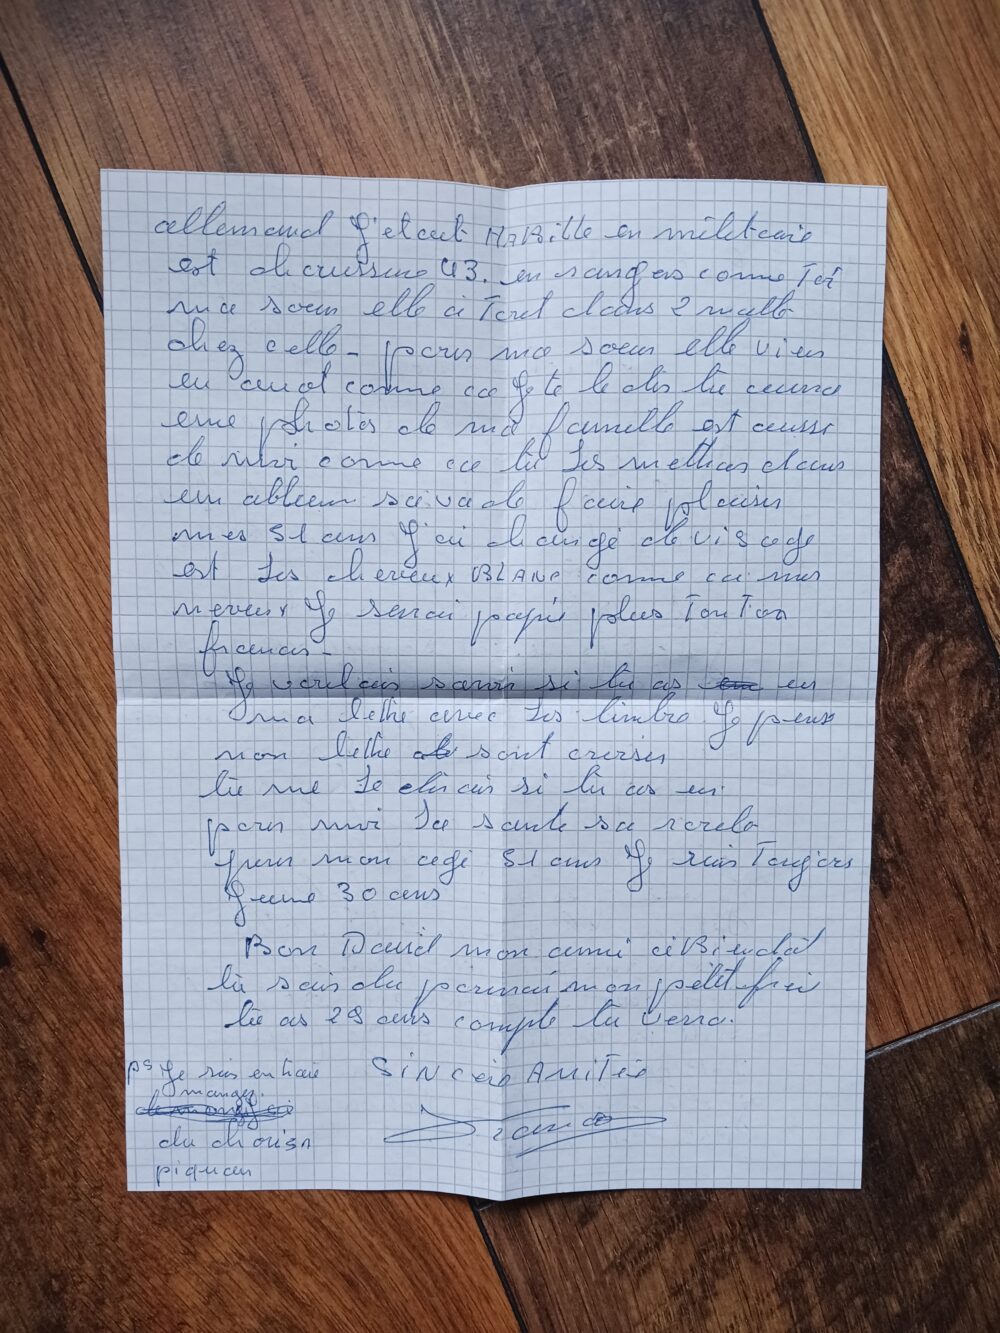 allemand j'etait HaBille en militaire
est chaussure 43. en rangas comme Toi
ma soeur elle a Tout dans 2 malle
chez elle - pour ma soeur elle vien
en aout comme ca je te le dis tu aura
une photos de ma famille est aussi
de moi comme ca tu les mettras dans
un ableau sa va de faire plaisir
mes 51 ans J'ai changé de visage
est les cheveux BLANC comme ca mes
neveux Je serai papie plus TonTon
francis -
Je voulais savoir si tu as en
ma lettre avec les timbre Je peux
mon lettre sont croiser
tu me le dirais si tu as eu
pour moi la sante sa roule
pour mon age 51 ans Je suis Toujors
Jeune 30 ans
Bon David mon ami a Bientôt
tu sais du parmai mon petit frei
tu as 29 ans compte tu verra.
ps Je suis entraie
SiNCeie AMiTie
manger
du chorisn
piquan